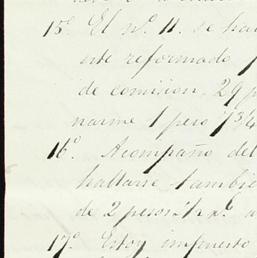 15º El nº. 11. se ha
este reformado p
de comision. 29 p
narme 1 peso 7 3/4
16º Acompaño del
hallarse tambie
de 2 pesos
17º Estoy impuesto